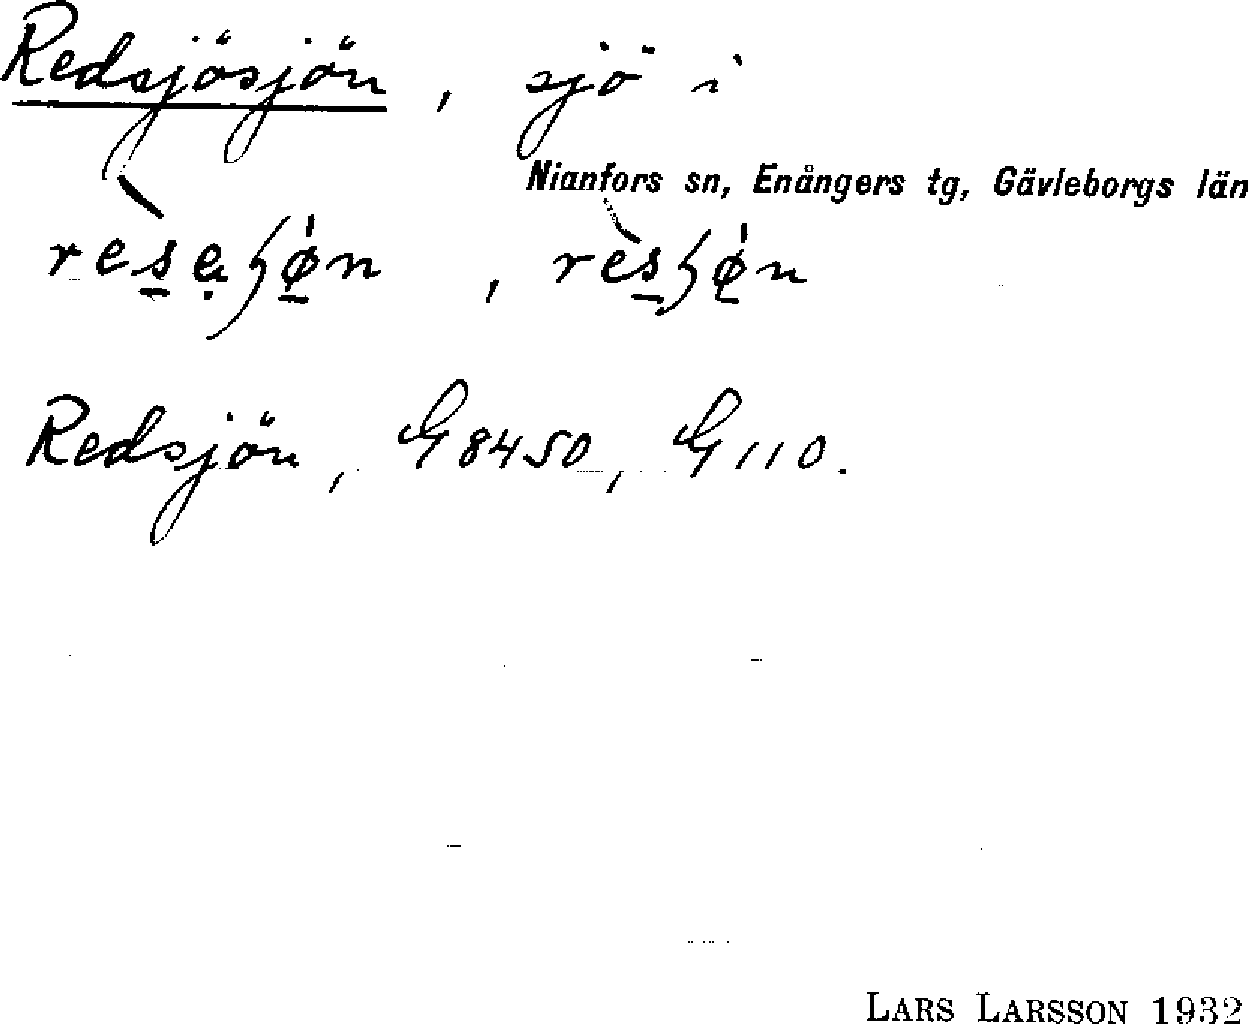 Redsjösjön, sjö i
Nianfors sn, Enångers tg, Gävleborgs län
Redsjön, G 8450, G 110.
LARS LARSSON 1932